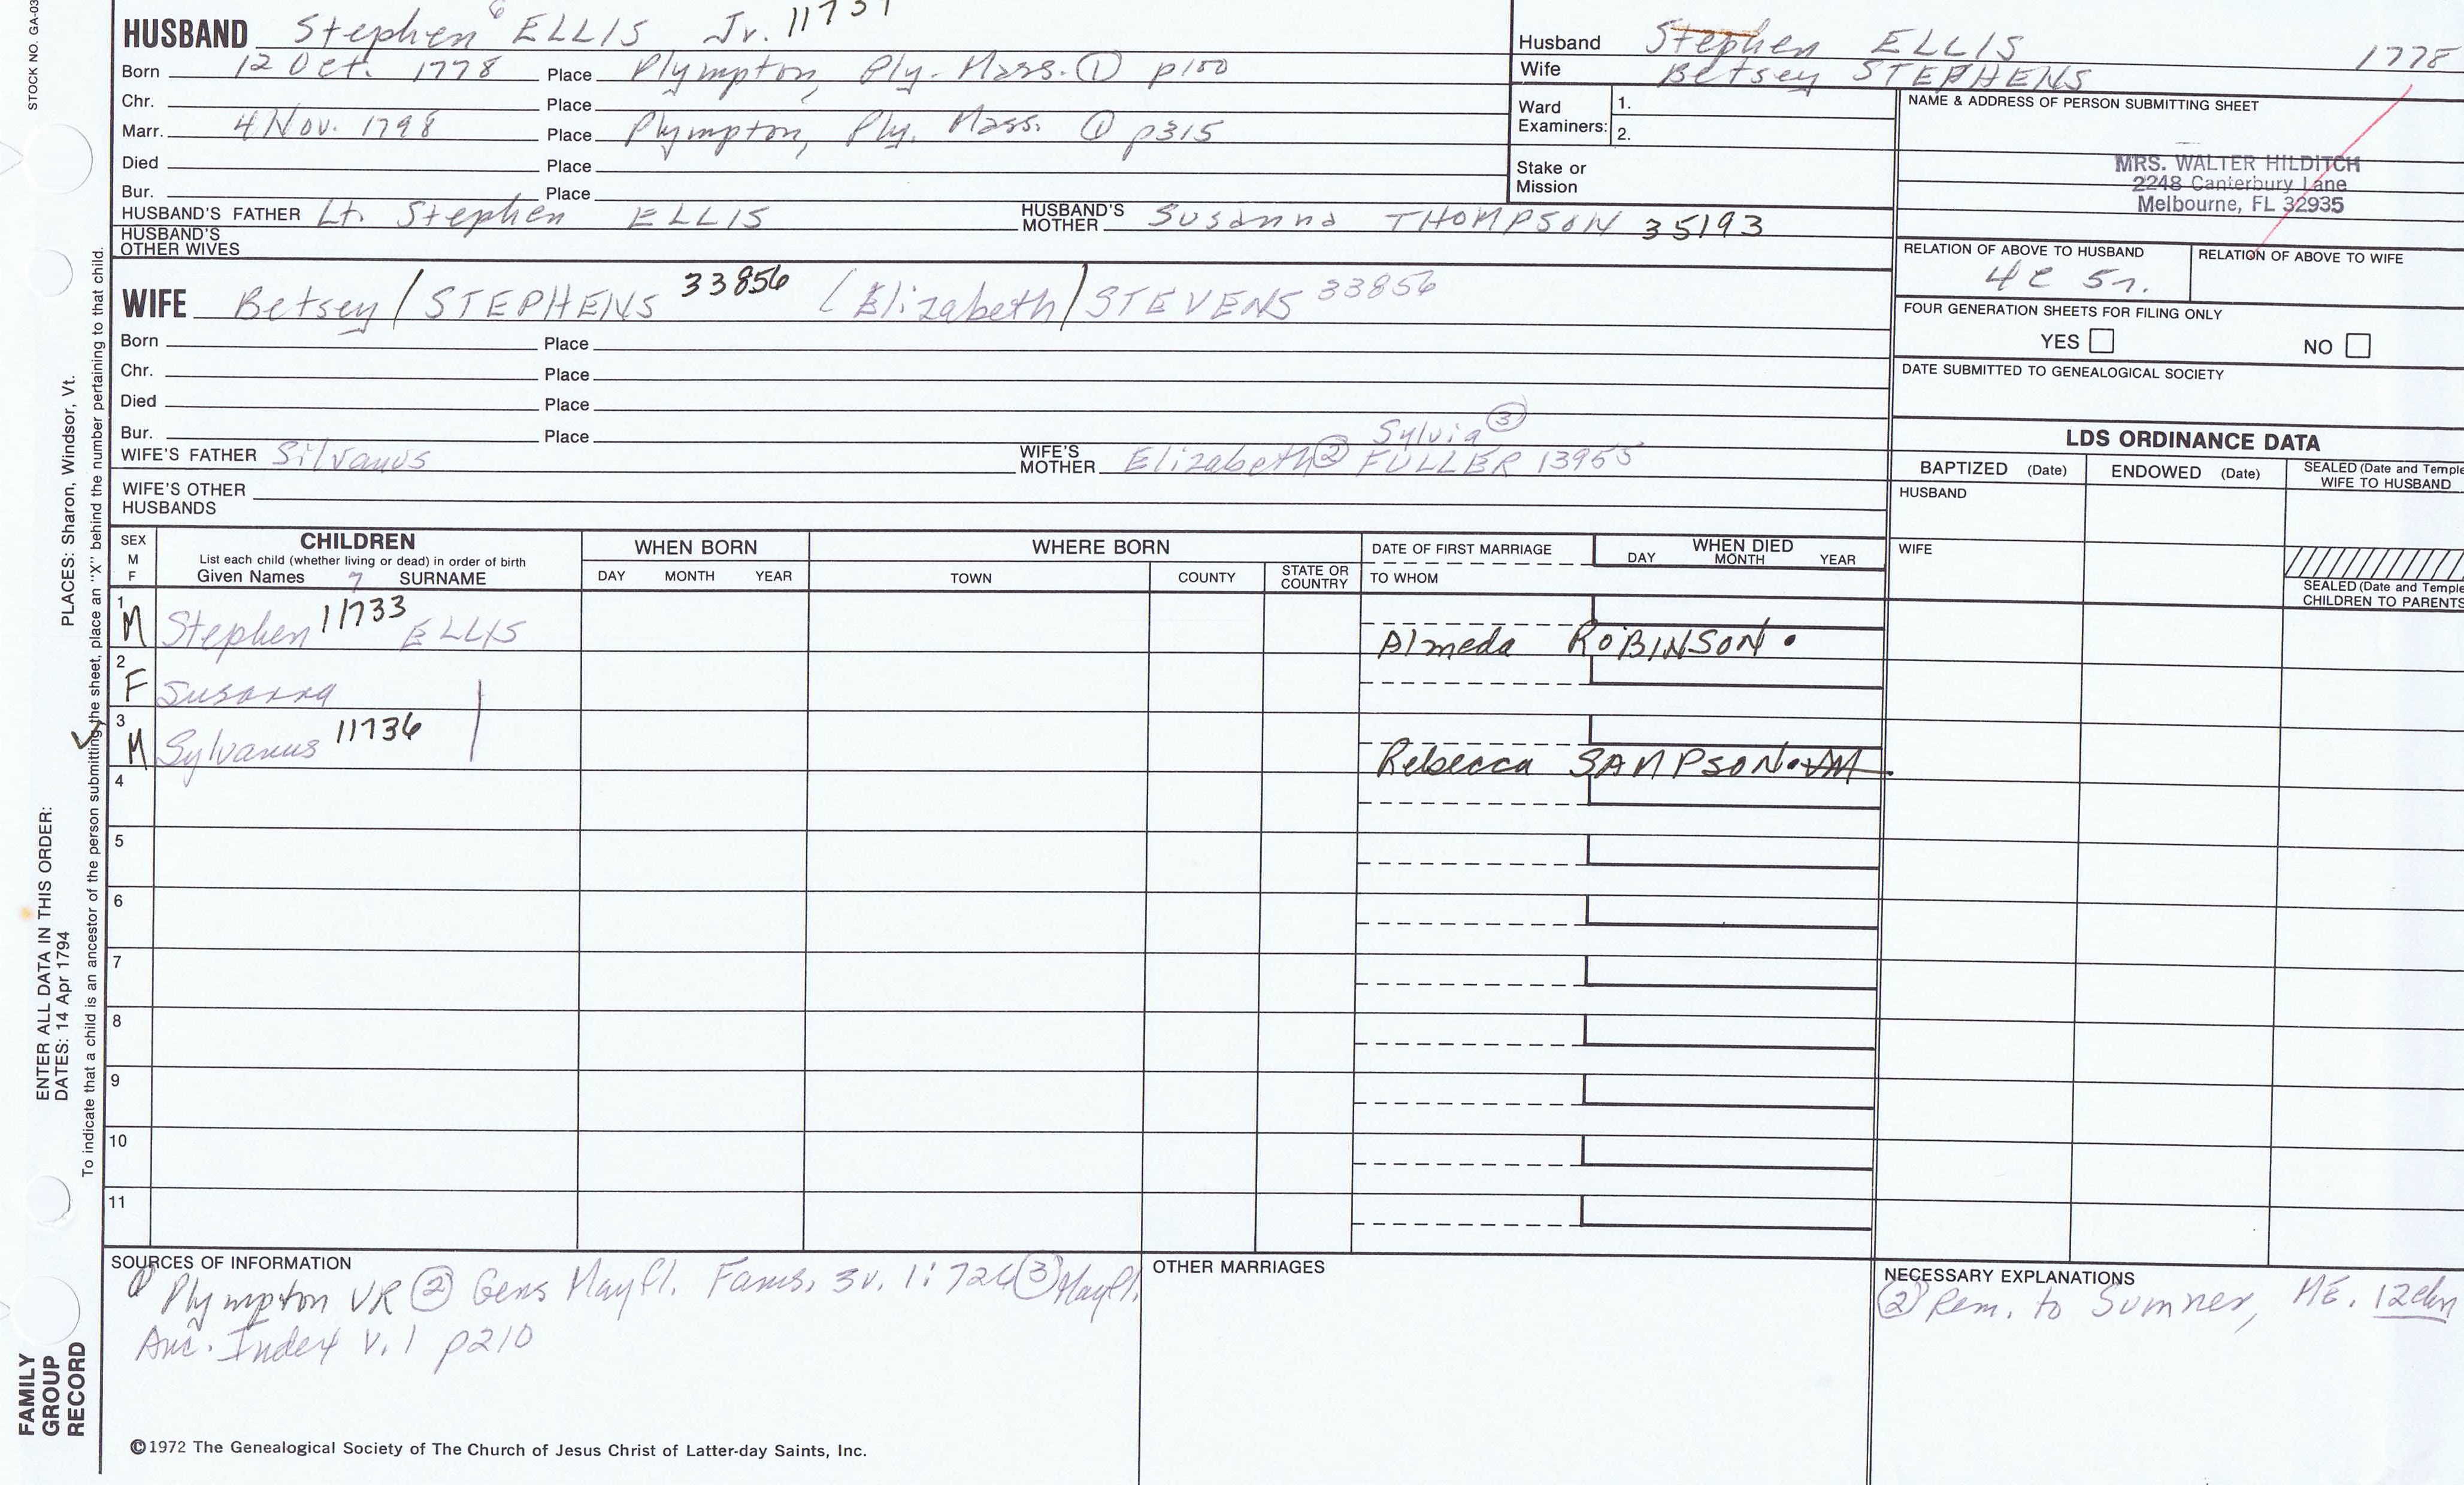 STOCK NO. GA-03
HUSBAND Stephen 6 ELLIS Jr. 11731
Born 12 Oct. 1778 Place Plympton, Ply. Mass. ① p100
Chr. Place
Marr. 4 Nov. 1798 Place Plympton, Ply. Mass. ① p315
Died Place
Bur. Place
HUSBAND'S FATHER Lt. Stephen ELLIS HUSBAND'S MOTHER Susanna THOMPSON 35193
HUSBAND'S OTHER WIVES
Husband Stephen ELLIS 1778
Wife Betsey STEPHENS
Ward Examiners: 1.
2.
Stake or Mission
NAME & ADDRESS OF PERSON SUBMITTING SHEET
MRS. WALTER HILDITCH
2248 Canterbury Lane
Melbourne, FL 32935
RELATION OF ABOVE TO HUSBAND RELATION OF ABOVE TO WIFE
4c 5r.
FOUR GENERATION SHEETS FOR FILING ONLY
YES NO
DATE SUBMITTED TO GENEALOGICAL SOCIETY
WIFE Betsey/STEPHENS 33856 (Elizabeth/STEVENS 33856
Born Place
Chr. Place
Died Place
Bur. Place
Sylvia ③
WIFE'S FATHER Silvanus WIFE'S MOTHER Elizabeth ② FULLER 13955
WIFE'S OTHER HUSBANDS
LDS ORDINANCE DATA
BAPTIZED (Date) ENDOWED (Date) SEALED (Date and Temple
WIFE TO HUSBAND
HUSBAND
WIFE
SEALED (Date and Temple
CHILDREN TO PARENTS
SEX M F
CHILDREN
List each child (whether living or dead) in order of birth
Given Names 7 SURNAME
WHEN BORN
DAY MONTH YEAR
WHERE BORN
TOWN COUNTY STATE OR COUNTRY
DATE OF FIRST MARRIAGE
TO WHOM
WHEN DIED
DAY MONTH YEAR
1 M Stephen 11733 ELLIS Almeda ROBINSON
2 F Susanna
3 M Sylvanus 11736 Rebecca SAMPSON
4
5
6
7
8
9
10
11
SOURCES OF INFORMATION
① Plympton VR ② Gens Mayfl. Fams. 3v. 1:726 ③ Mayfl.
Anc. Index V. 1 p210
OTHER MARRIAGES
NECESSARY EXPLANATIONS
② Rem. to Sumner, ME. 12chn
©1972 The Genealogical Society of The Church of Jesus Christ of Latter-day Saints, Inc.
PLACES: Sharon, Windsor, Vt.
ENTER ALL DATA IN THIS ORDER:
DATES: 14 Apr 1794
To indicate that a child is an ancestor of the person submitting the sheet, place an "X" behind the number pertaining to that child.
FAMILY
GROUP
RECORD